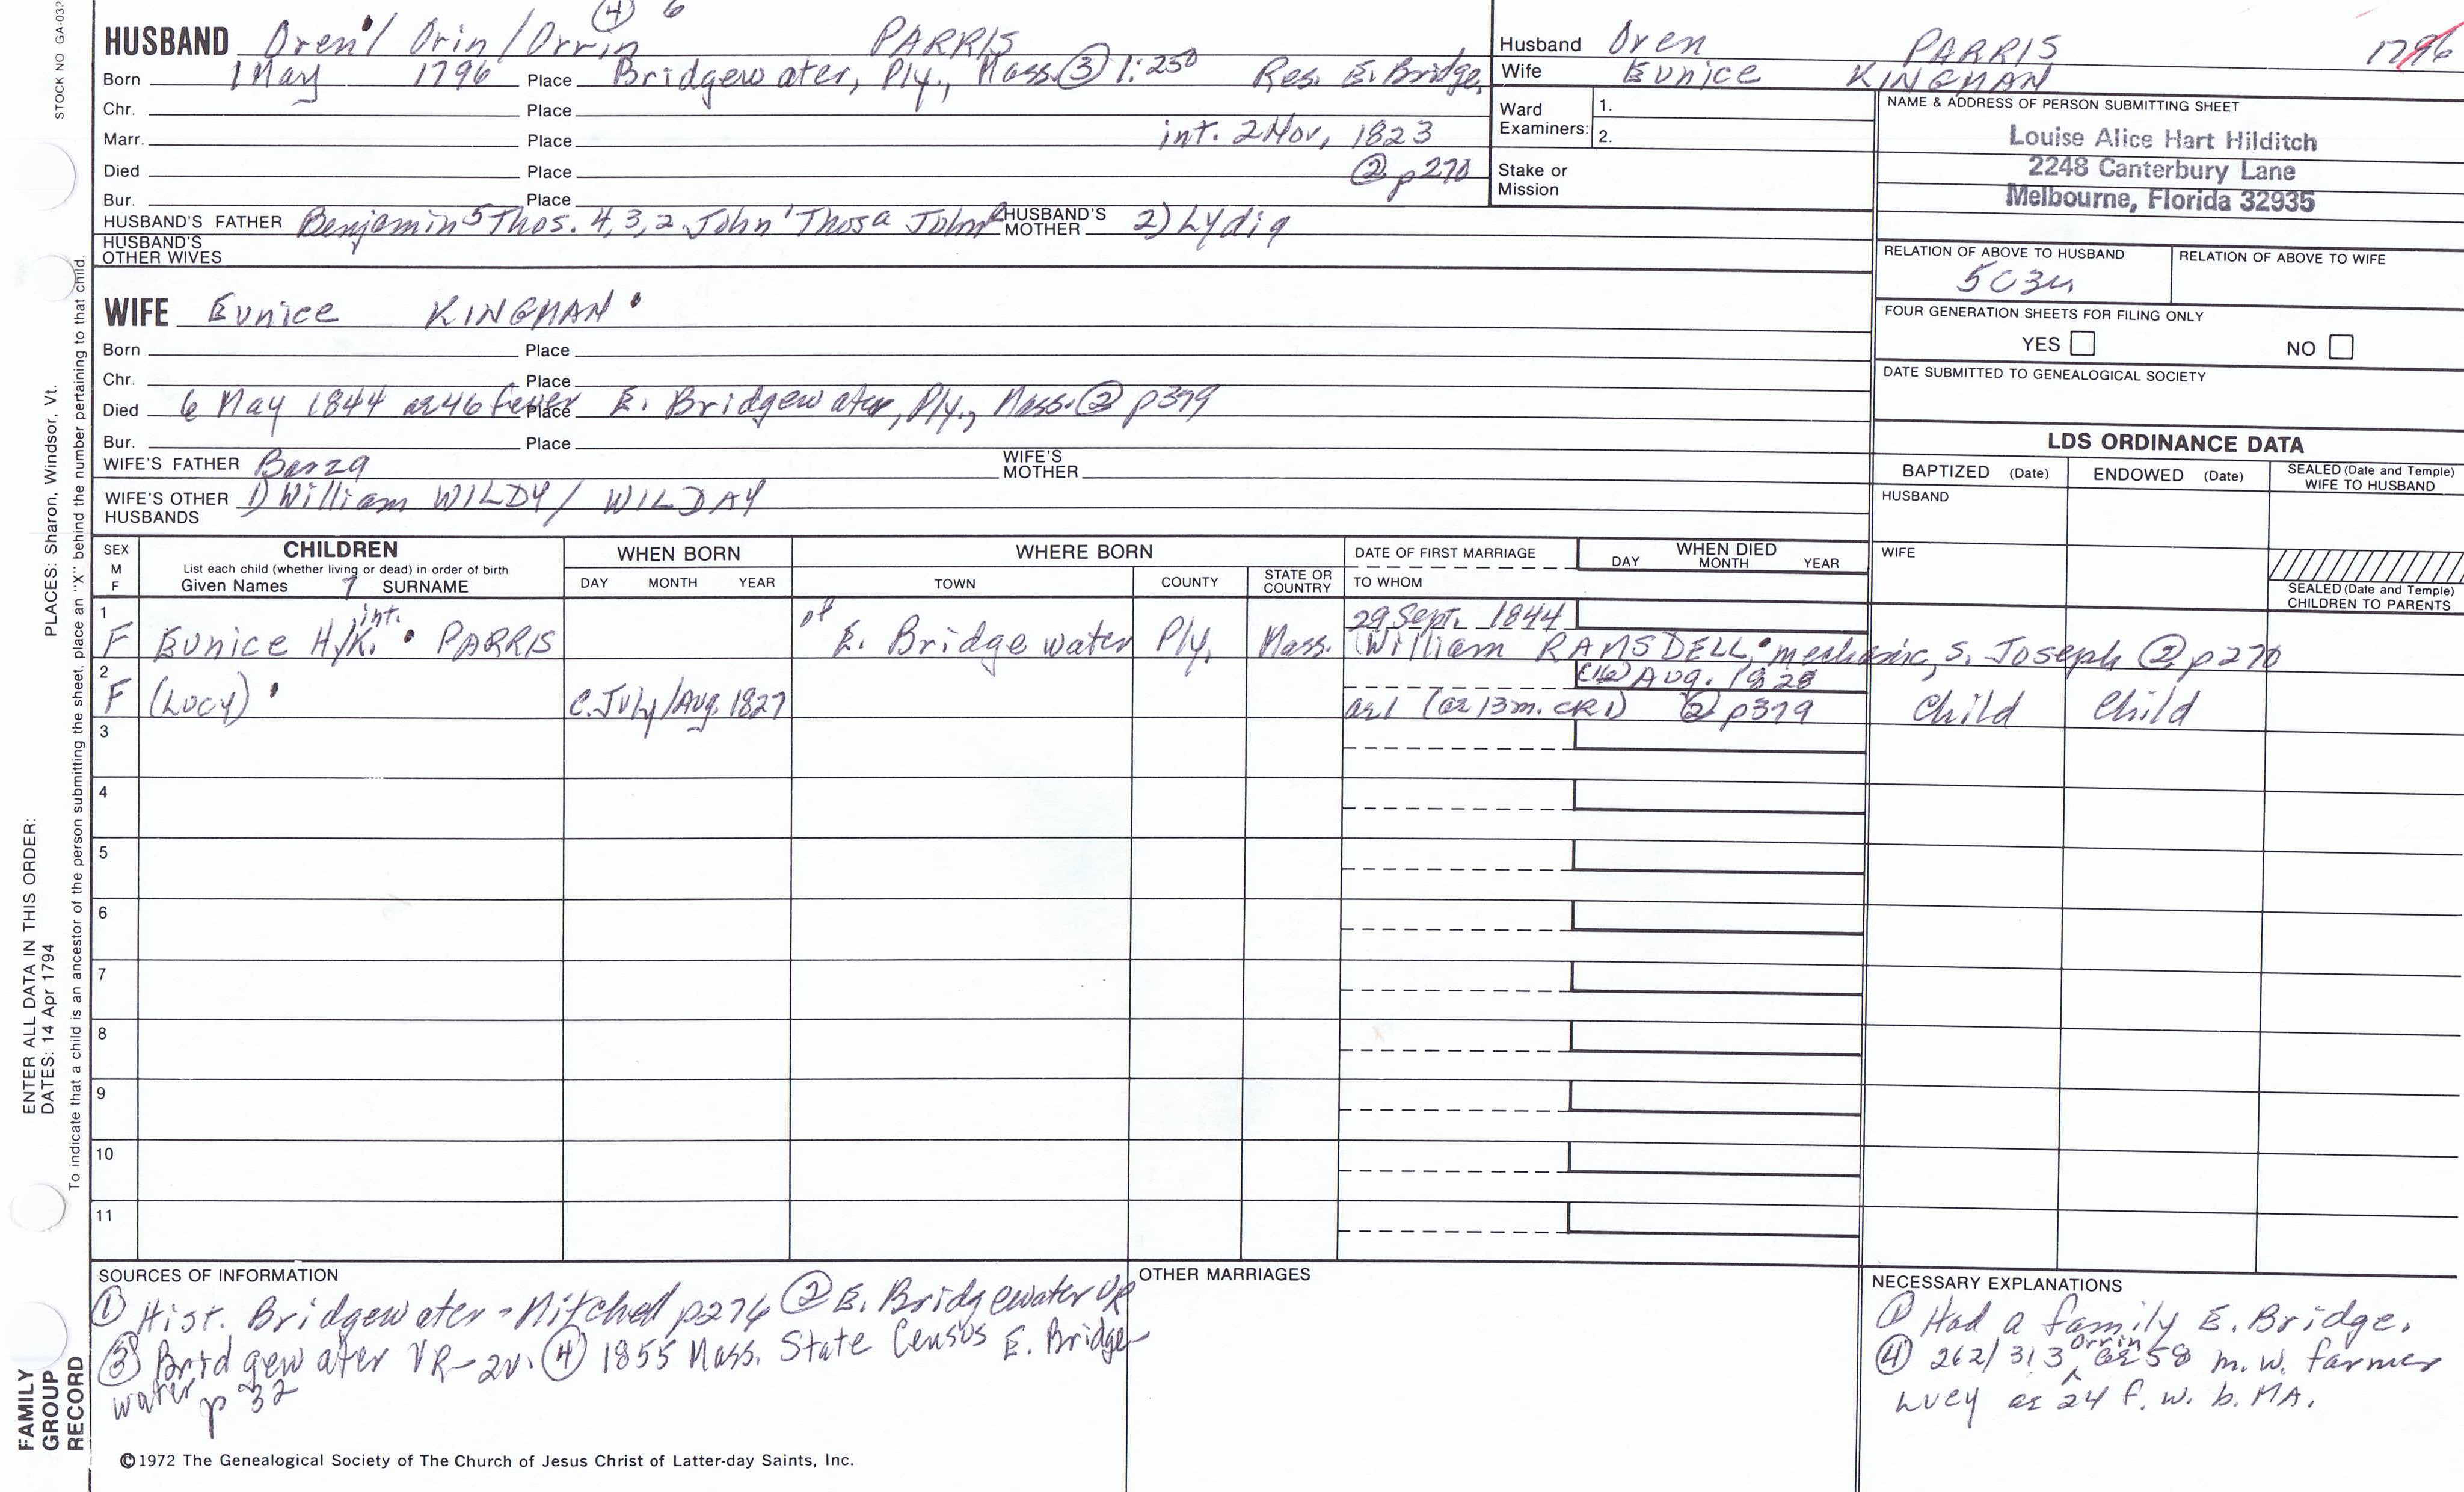 STOCK NO GA-03
④ 6
HUSBAND Oren / Orin / Orrin PARRIS
Born 1 May 1796 Place Bridgewater, Ply., Mass. ③ 1:250 Res. E. Bridge.
Chr. Place
Marr. Place int. 2 Nov, 1823
Died Place ② p270
Bur. Place
HUSBAND'S FATHER Benjamin 5 Thos. 4, 3, 2 John 1 Thos a John HUSBAND'S MOTHER 2) Lydia
HUSBAND'S OTHER WIVES
WIFE Eunice KINGMAN
Born Place
Chr. Place
Died 6 May 1844 ae 46 fever Place E. Bridgewater, Ply., Mass. ② p379
Bur. Place
WIFE'S FATHER WIFE'S MOTHER
WIFE'S OTHER HUSBANDS 1) William WILDY / WILDAY
Husband Oren PARRIS 1796
Wife Eunice KINGMAN
Ward Examiners: 1.
2.
Stake or Mission
NAME & ADDRESS OF PERSON SUBMITTING SHEET
Louise Alice Hart Hilditch
2248 Canterbury Lane
Melbourne, Florida 32935
RELATION OF ABOVE TO HUSBAND RELATION OF ABOVE TO WIFE
FOUR GENERATION SHEETS FOR FILING ONLY
YES NO
DATE SUBMITTED TO GENEALOGICAL SOCIETY
LDS ORDINANCE DATA
BAPTIZED (Date) ENDOWED (Date) SEALED (Date and Temple) WIFE TO HUSBAND
HUSBAND
WIFE
SEALED (Date and Temple) CHILDREN TO PARENTS
SEX M F
CHILDREN
List each child (whether living or dead) in order of birth
Given Names 7 SURNAME
WHEN BORN
DAY MONTH YEAR
WHERE BORN
TOWN COUNTY STATE OR COUNTRY
DATE OF FIRST MARRIAGE
TO WHOM
WHEN DIED
DAY MONTH YEAR
1 int. of 29 Sept. 1844
F Eunice H/K. PARRIS E. Bridgewater Ply. Mass. William RAMSDELL, mechanic, s. Joseph ② p270
2 (16) Aug. 1828
F (Lucy) c. July/Aug. 1827 ae 1 (ae 13m. CR1) ② p379 Child Child
3
4
5
6
7
8
9
10
11
SOURCES OF INFORMATION
① Hist. Bridgewater - Mitchell p276 ② E. Bridgewater VR
③ Bridgewater VR - 2v. ④ 1855 Mass. State Census E. Bridge
water p 32
OTHER MARRIAGES
NECESSARY EXPLANATIONS
① Had a family E. Bridge.
④ 262/313 Orrin ae 58 m. w. farmer
Lucy ae 24 f. w. b. MA.
©1972 The Genealogical Society of The Church of Jesus Christ of Latter-day Saints, Inc.
PLACES: Sharon, Windsor, Vt.
To indicate that a child is an ancestor of the person submitting the sheet, place an "X" behind the number pertaining to that child.
ENTER ALL DATA IN THIS ORDER:
DATES: 14 Apr 1794
FAMILY
GROUP
RECORD